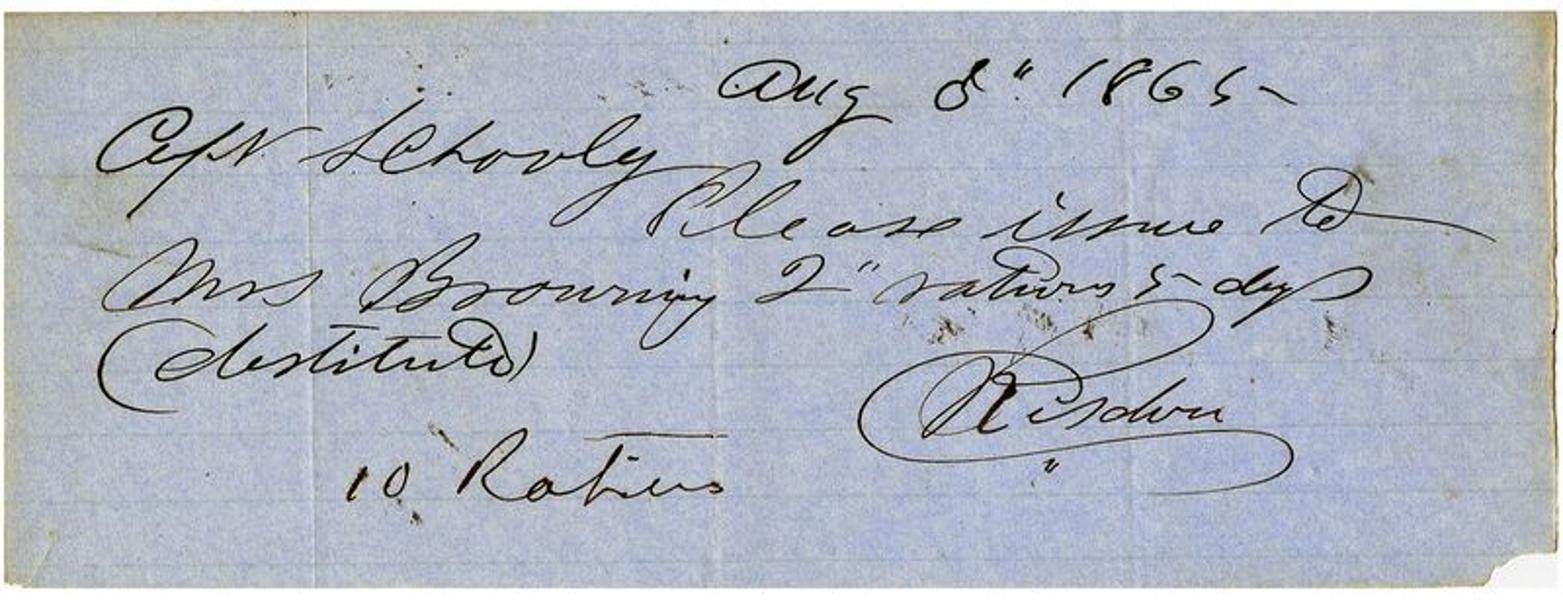 Aug 8" 1865
Capt Schooly
Please issue to
Mrs Browning 2" rations 5 days
(destitute)
Risdon
10 Rations